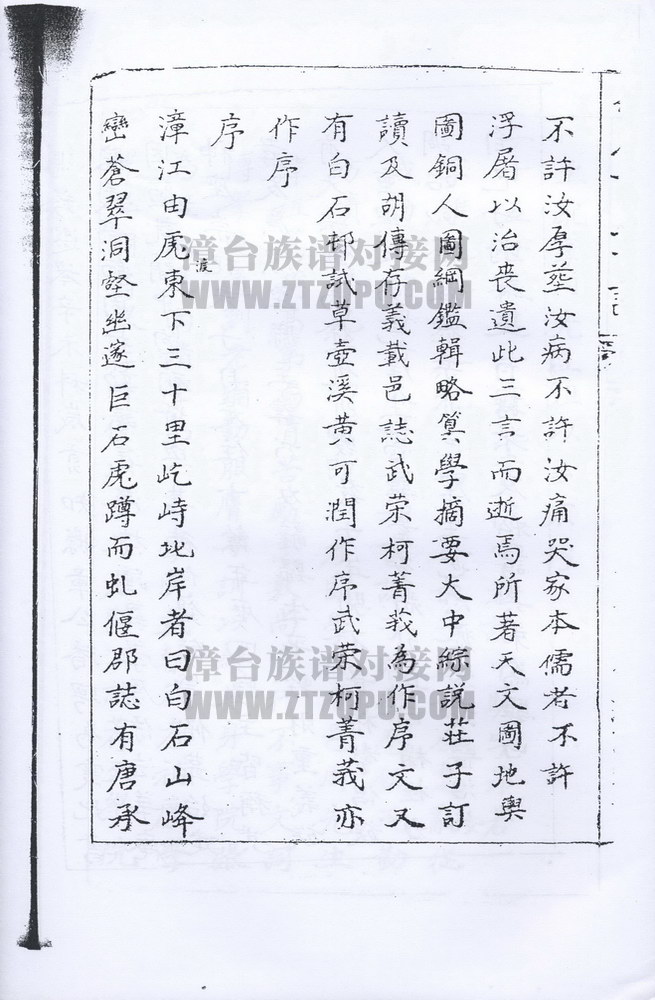 不許汝厚塟汝病不許汝痛哭家本儒者不許
浮屠以治喪遺此三言而逝焉所著天文圖地輿
圖銅人圖綱鑑輯略筭學摘要大中綜説莊子訂
讀及胡傳存義載邑誌武荣柯菁莪為作序文又
有白石邨試草壺溪黄可潤作序武荣柯菁莪亦
作序
序
漳江由虎東下三十里屹峙北岸者曰白石山峰
渡
巒蒼翠洞壑幽邃巨石虎蹲而虬偃郡誌有唐承
漳台族谱对接网
WWW.ZTZUPU.COM
漳台族谱对接网
WWW.ZTZUPU.COM